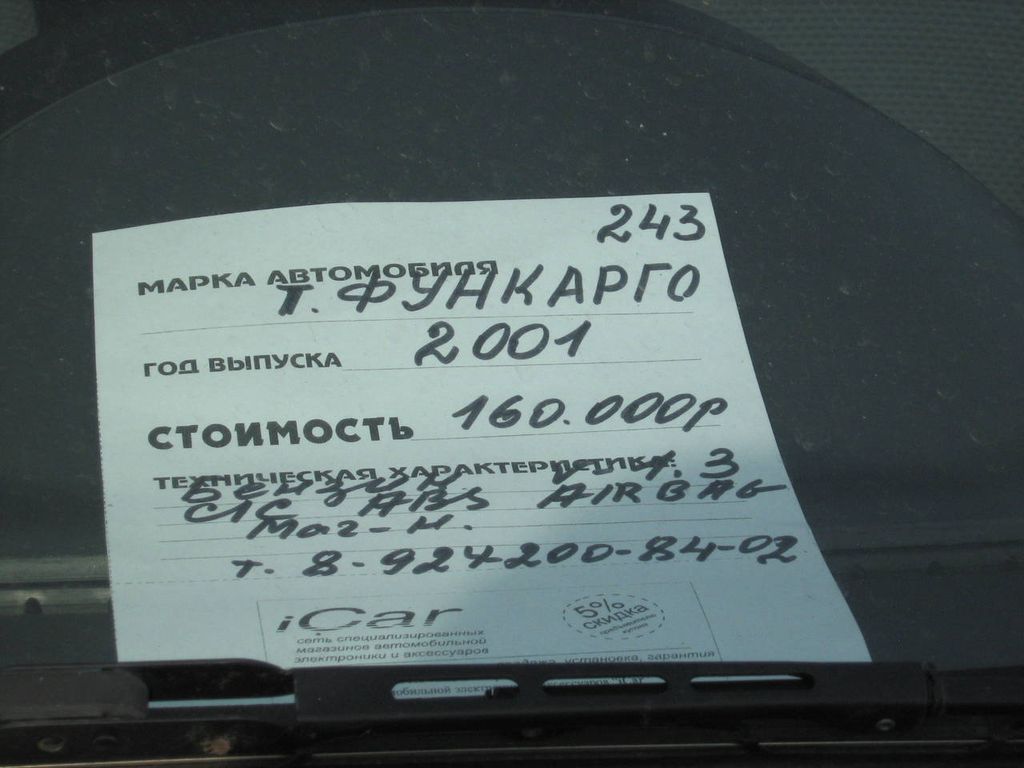 243
МАРКА АВТОМОБИЛЯ
Т. ФУНКАРГО
ГОД ВЫПУСКА 2001
СТОИМОСТЬ 160.000р
ТЕХНИЧЕСКАЯ ХАРАКТЕРИСТИКА:
Бензин V-1.3
С/С ABS AIRBAG
Маг-н.
т. 8-924-200-84-02
iCar
сеть специализированных
магазинов автомобильной
электроники и аксессуаров
5%
скидка
предъявителю
купона
продажа, установка, гарантия